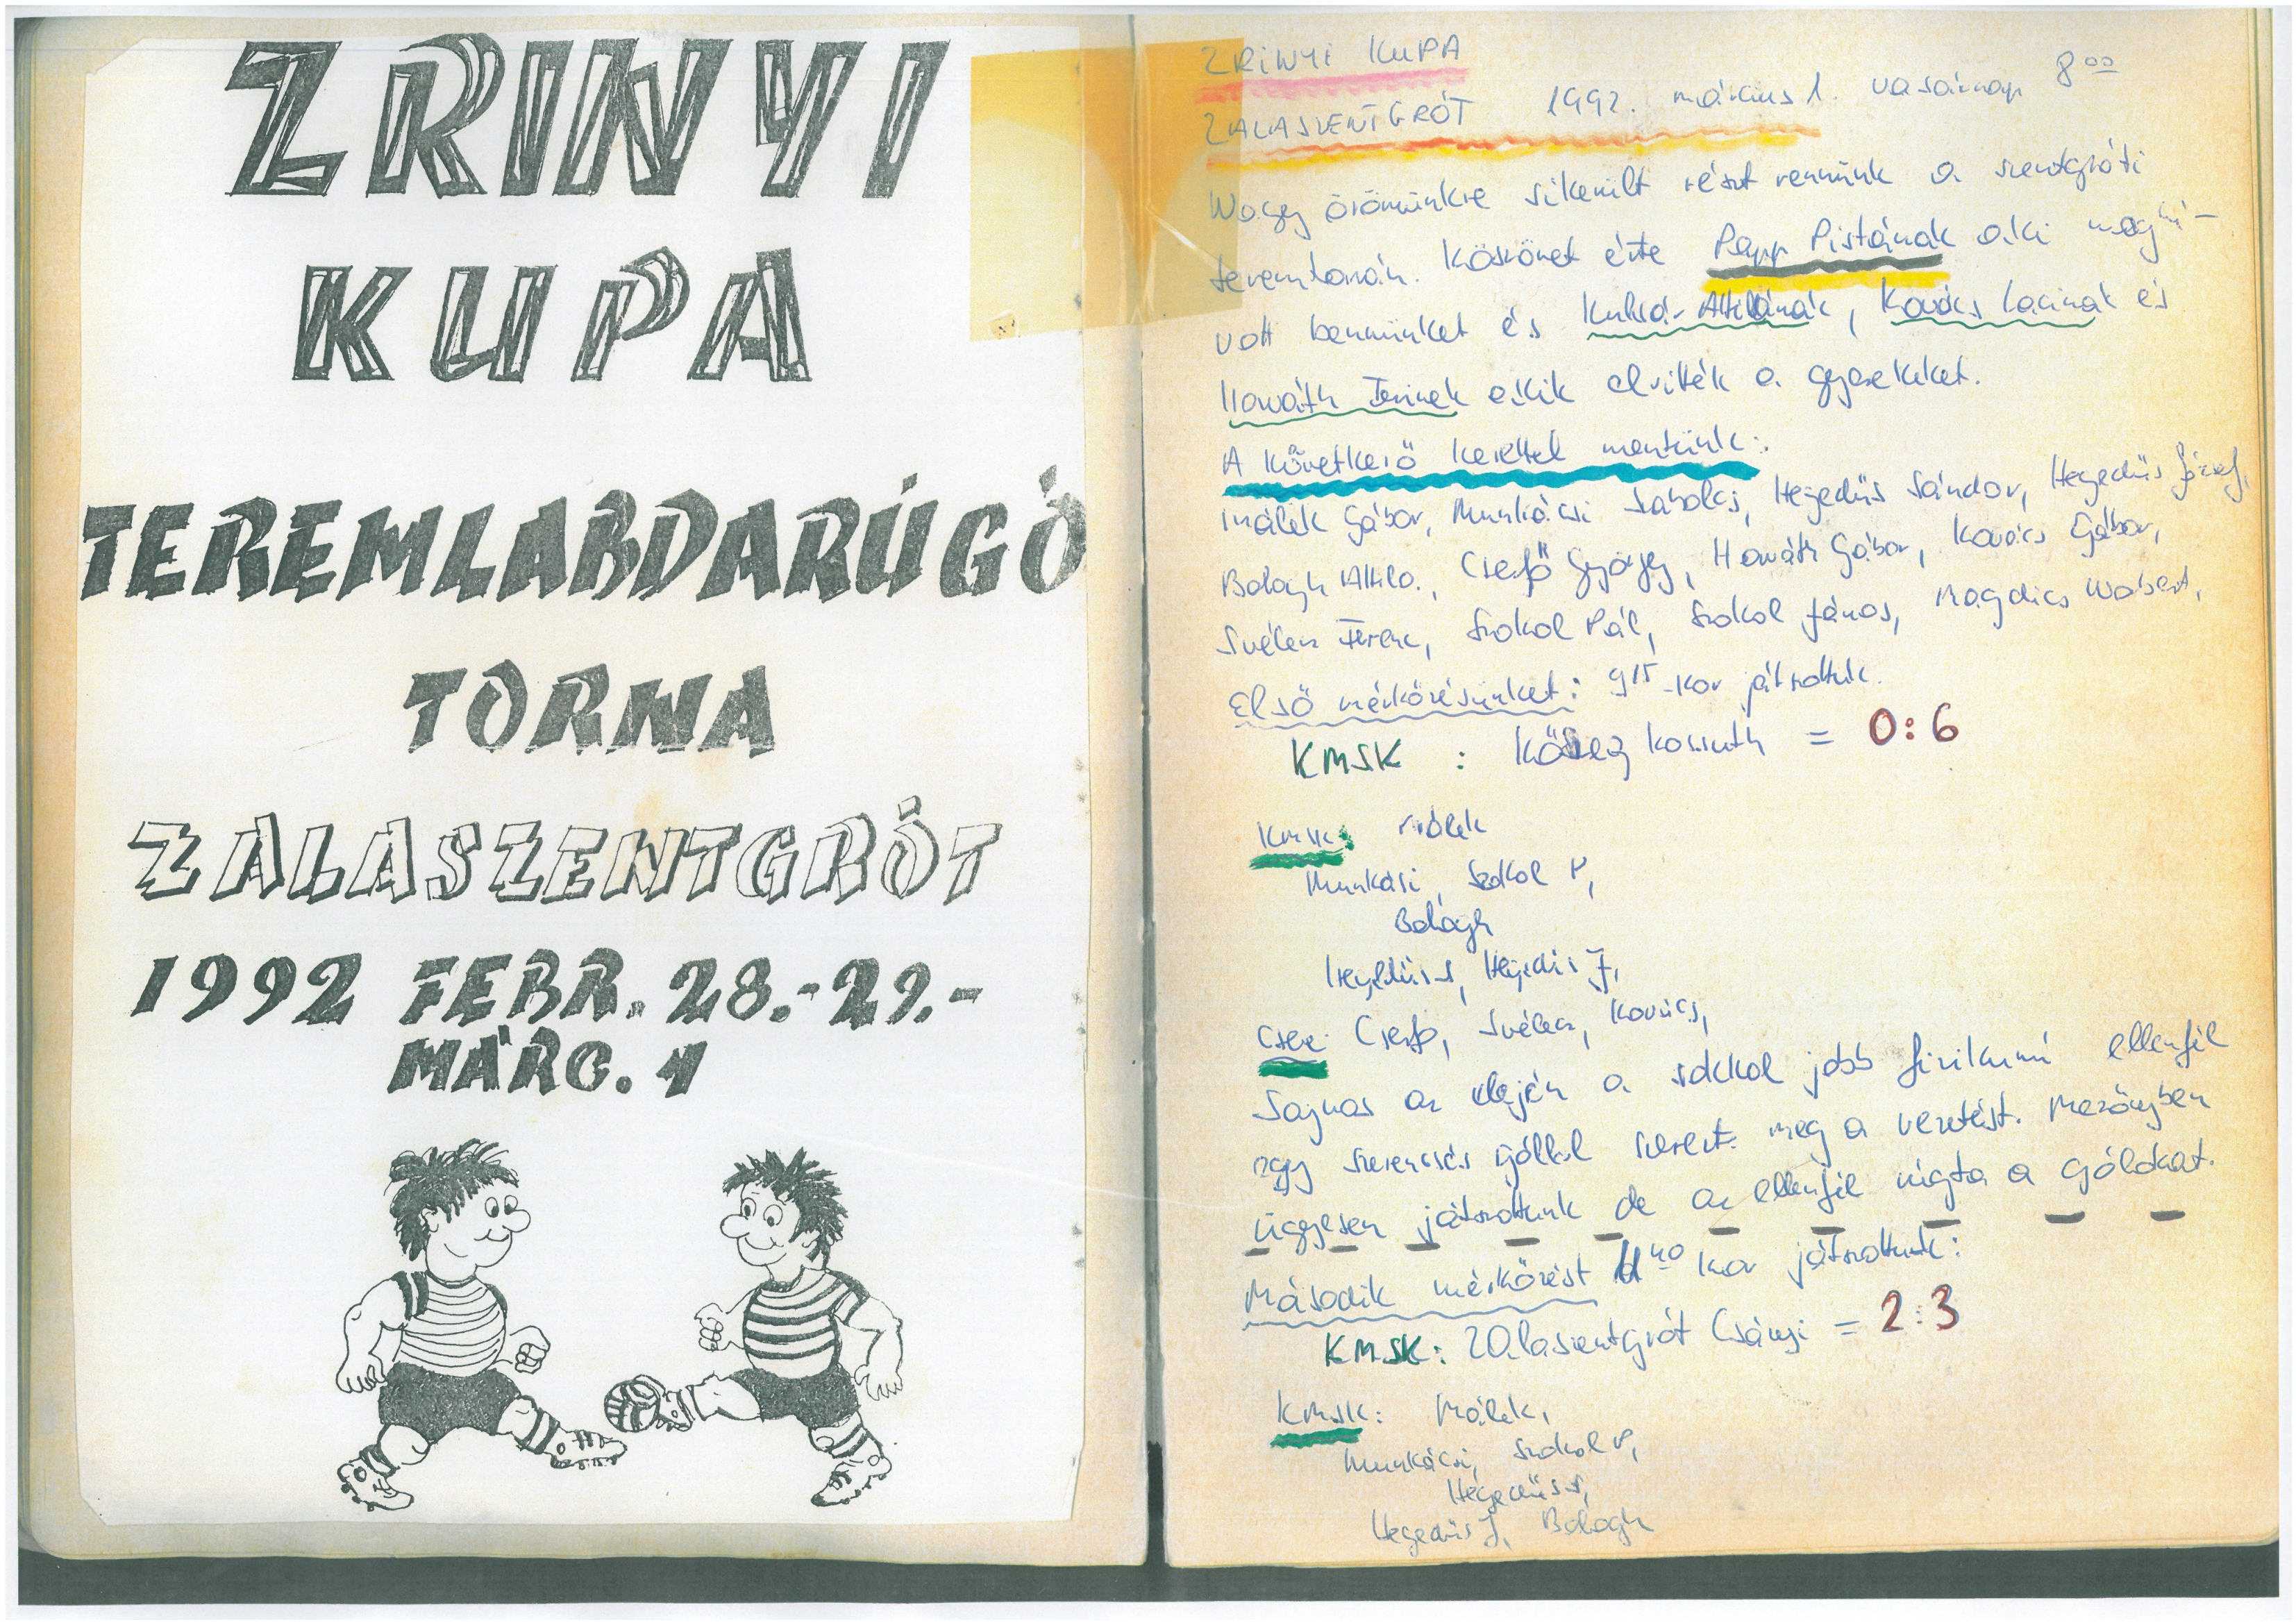 ZRINYI
KUPA
TEREMLABDARÚGÓ
TORNA
ZALASZENTGRÓT
1992 FEBR. 28.-29.-
MÁRC. 1
ZRINYI KUPA
ZALASZENTGRÓT 1992. március 1. vasárnap 8 00
Nagy örömünkre sikerült részt vennünk a szentgróti
teremtornán. Köszönet érte Papp Pistának aki meghí-
vott bennünket és Attilának, Kovács Lacinak és
Horváth Ferinek akik elvitték a gyerekeket.
A következő kerettel mentünk:
Málek Gábor, Munkácsi Szabolcs, Hegedüs Sándor, Hegedüs József,
Balogh Attila, Cserfő György, Horváth Gábor, Kovács Gábor,
Svélecz Ferenc, Szokol Pál, Szokol János, Magdics Norbert,
Első mérkőzésünket: 9 15 -kor játszottuk.
KMSK : Kossuth = 0:6
KMSK: Málek
Munkácsi, Szokol P,
Balogh
Hegedüs S, Hegedüs J,
Csere: Cserfő, Svélecz, Kovács,
Sajnos az elején a sokkal jobb fizikumú ellenfél
egy szerencsés góllal szerezte meg a vezetést. Mezőnyben
ügyesen játszottunk de az ellenfél rúgta a gólokat.
Második mérkőzést 11 40 kor játszottuk:
KMSK: Zalaszentgrót Csányi = 2:3
KMSK: Málek,
Munkácsi, Szokol P,
Hegedüs S,
Hegedüs J, Balogh